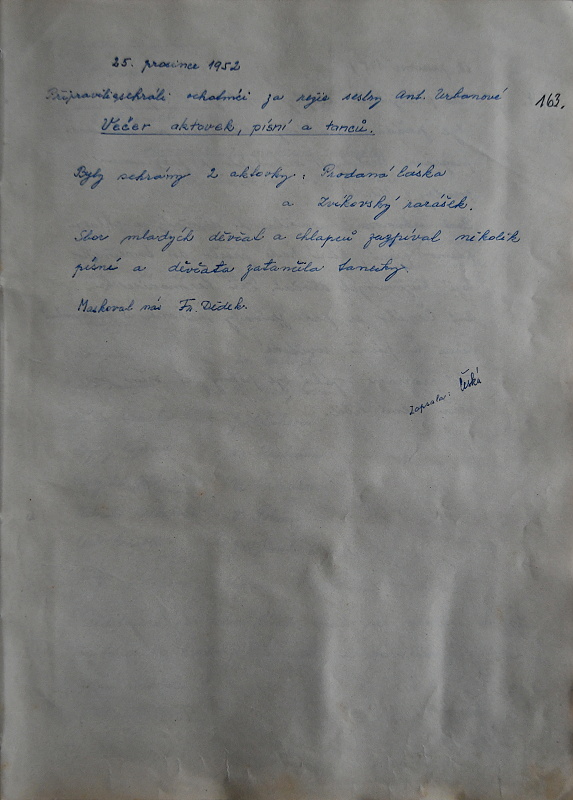 25. prosince 1952
Připravili, sehráli ochotníci za režie sestry Ant. Urbanové
163.
Večer aktovek, písní a tanců.
Byly sehrány 2 aktovky: Prodaná láska
a Zvíkovský rarášek.
Sbor mladých děvčat a chlapců zazpíval několik
písně a děvčata zatančila tanečky.
Maskoval nás Fr. Dědek.
Zapsala: Česká